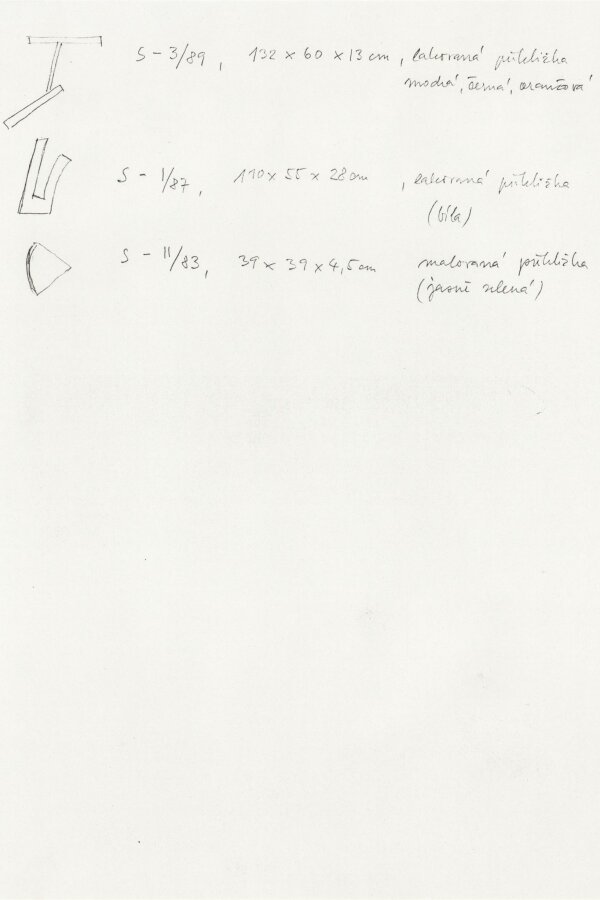 S - 3/89, 132 x 60 x 13 cm, lakovaná překližka
modrá, černá, oranžová
S - 1/87, 110 x 55 x 28 cm, lakovaná překližka
(bílá)
S - 11/83, 39 x 39 x 4,5 cm malovaná překližka
(jasně zelená)